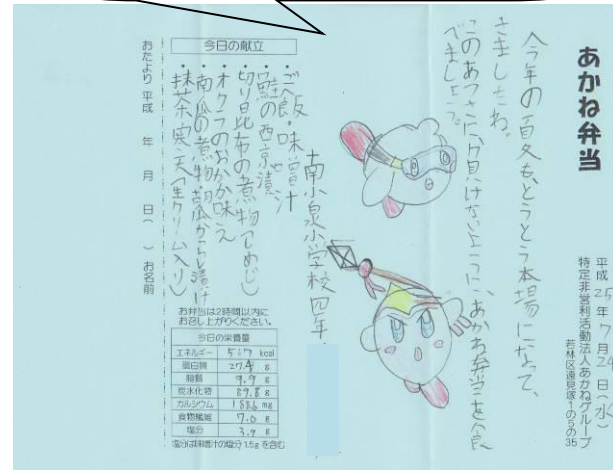 あかね弁当
平成25年7月24日(水)
特定非営利活動法人あかねグループ
若林区遠見塚1の5の35
今年の夏もとうとう本場になって、
きましたね。
このあつさに負けないように、あかね弁当を食
べましょう。
南小泉小学校四年
今日の献立
・ご飯・味噌汁
・鮭の西京漬
・切り昆布の煮物(しめじ)
・オクラのおかか味え
・南瓜の煮物・胡瓜からし漬け
・抹茶寒天(生クリーム入り)
お弁当は2時間以内に
お召し上がりください。
今日の栄養量
エネルギー 517 kcal
蛋白質 27.4 g
脂質 9.9 g
炭水化物 89.8 g
カルシウム 188.6 mg
食物繊維 7.0 g
塩分 3.9 g
塩分は味噌汁の塩分1.5gを含む
おたより 平成 年 月 日( ) お名前